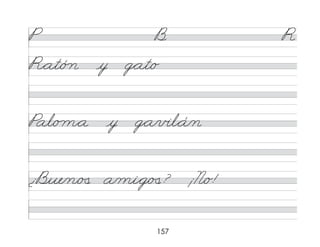 P B R
Ratón y gato
Paloma y gavilán
¿Buenos amigos? ¡No!
157